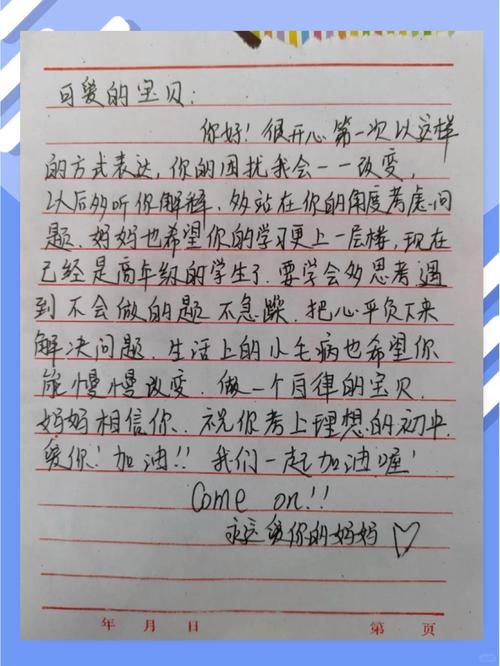 可爱的宝贝:
你好!很开心第一次以这样
的方式表达,你的困扰我会一一改变,
以后多听你解释、多站在你的角度考虑问
题、妈妈也希望你的学习更上一层楼,现在
已经是高年级的学生了、要学会多思考、遇
到不会做的题 不急躁、把心平负下来
解决问题、生活上的小毛病也希望你
能慢慢改变、做一个自律的宝贝、
妈妈相信你、祝你考上理想的初中、
爱你!加油!!我们一起加油喔!
Come on!!
永远爱你的妈妈
年 月 日 第 页